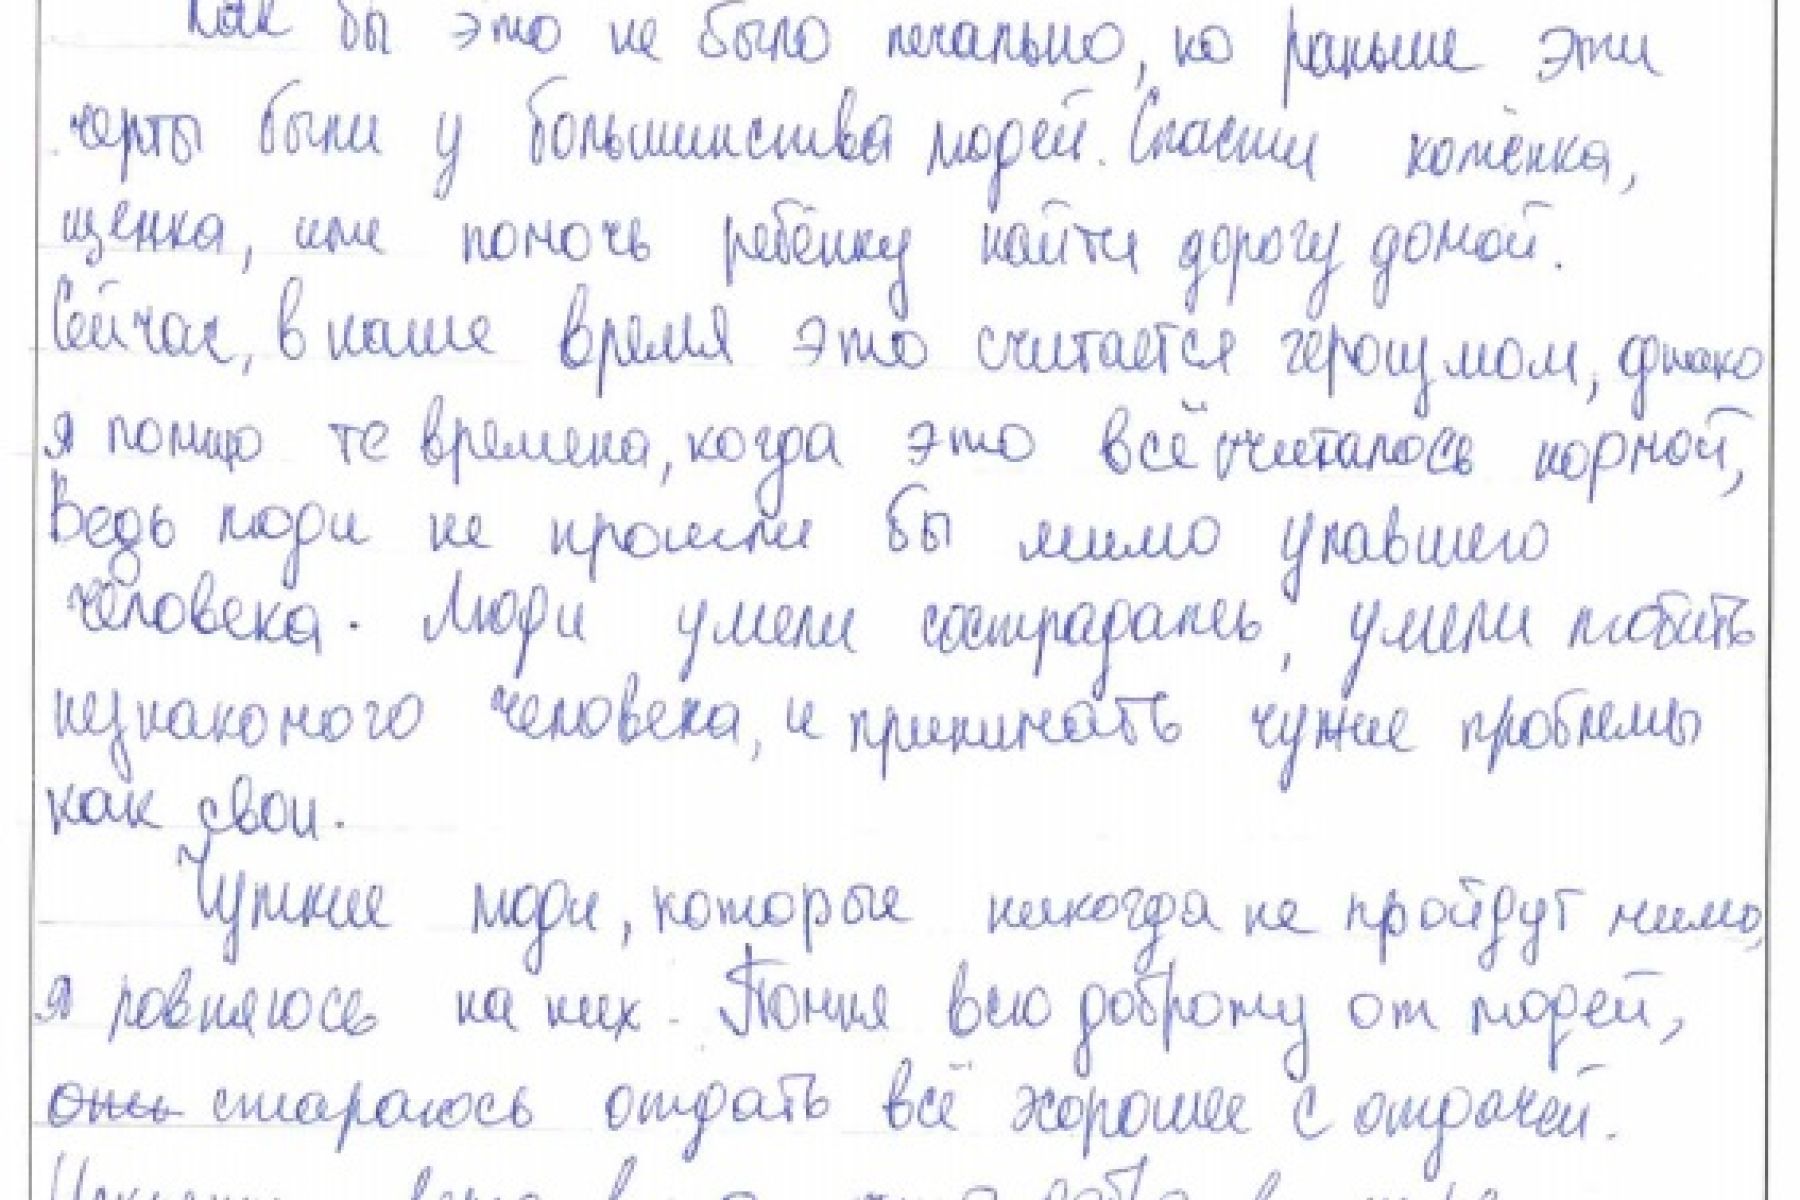 Как бы это не было печально, но раньше эти
черты были у большинства людей. Спасти котёнка,
щенка, или помочь ребёнку найти дорогу домой.
Сейчас, в наше время это считается героизмом, однако
я помню те времена, когда это всё считалось нормой,
Ведь люди не прошли бы мимо упавшего
человека. Люди умели сострадать, умели любить
незнакомого человека, и принимать чужие проблемы
как свои.
Чуткие люди, которые никогда не пройдут мимо,
я ровняюсь на них. Помня всю доброту от людей,
они стараюсь отдать всё хорошее с отдачей.